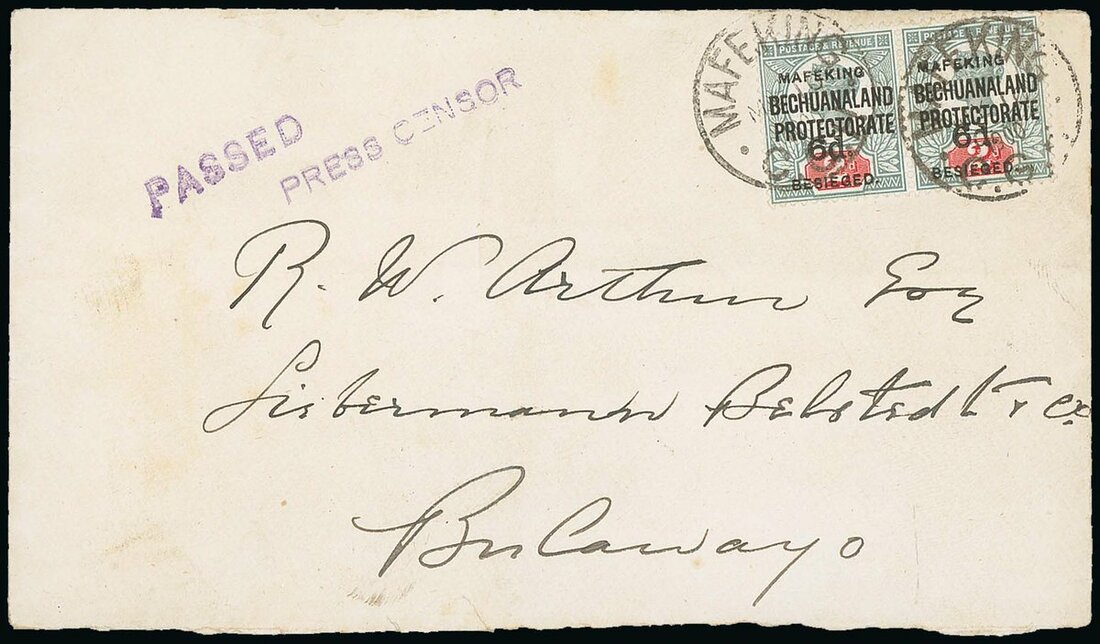 PASSED
PRESS CENSOR
MAFEKING
MAFEKING
POSTAGE & REVENUE
MAFEKING
BECHUANALAND
PROTECTORATE
6d.
BESIEGED.
MAFEKING
BECHUANALAND
PROTECTORATE
6d.
BESIEGED.
R. W. Arthur Esq
Liebermann Belstedt & Co
Bulawayo